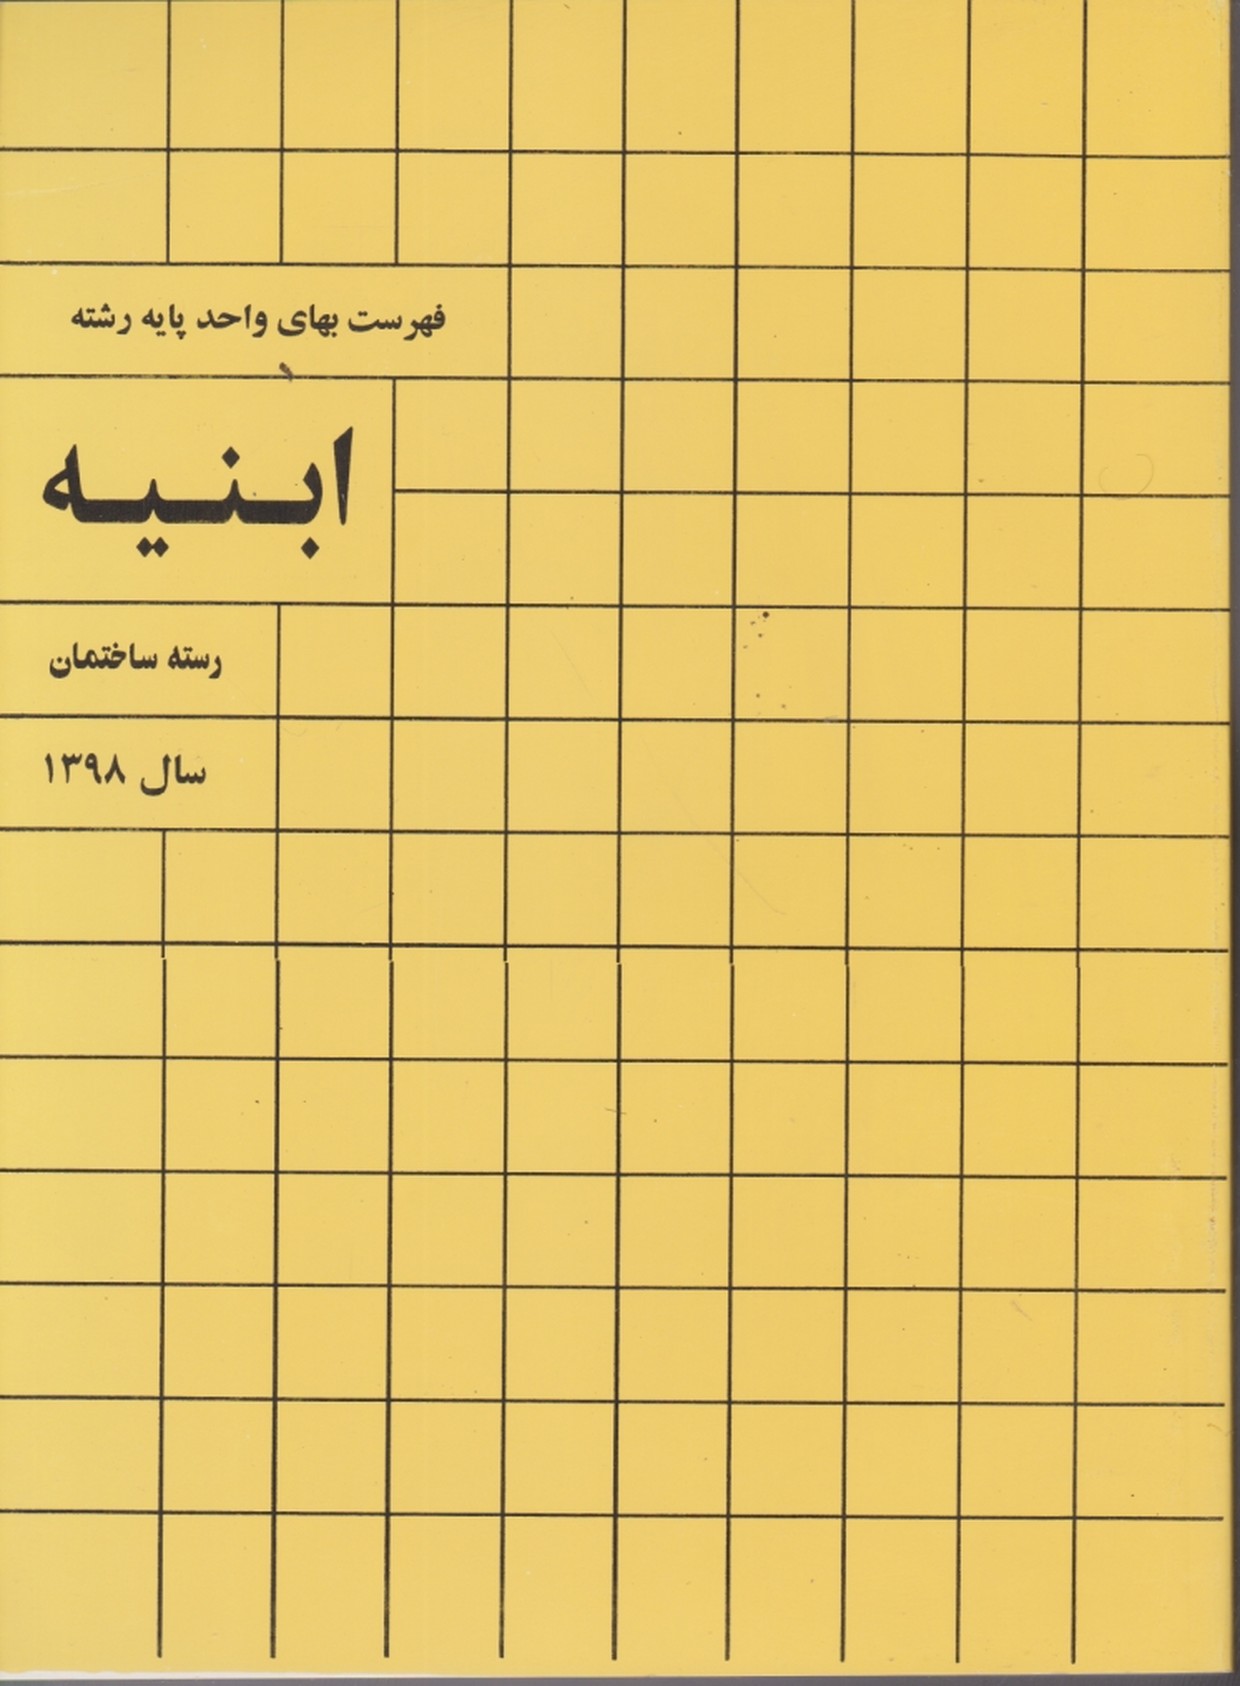 فهرست بهای واحد پایه رشته
ابنیه
رسته ساختمان
سال ۱۳۹۸